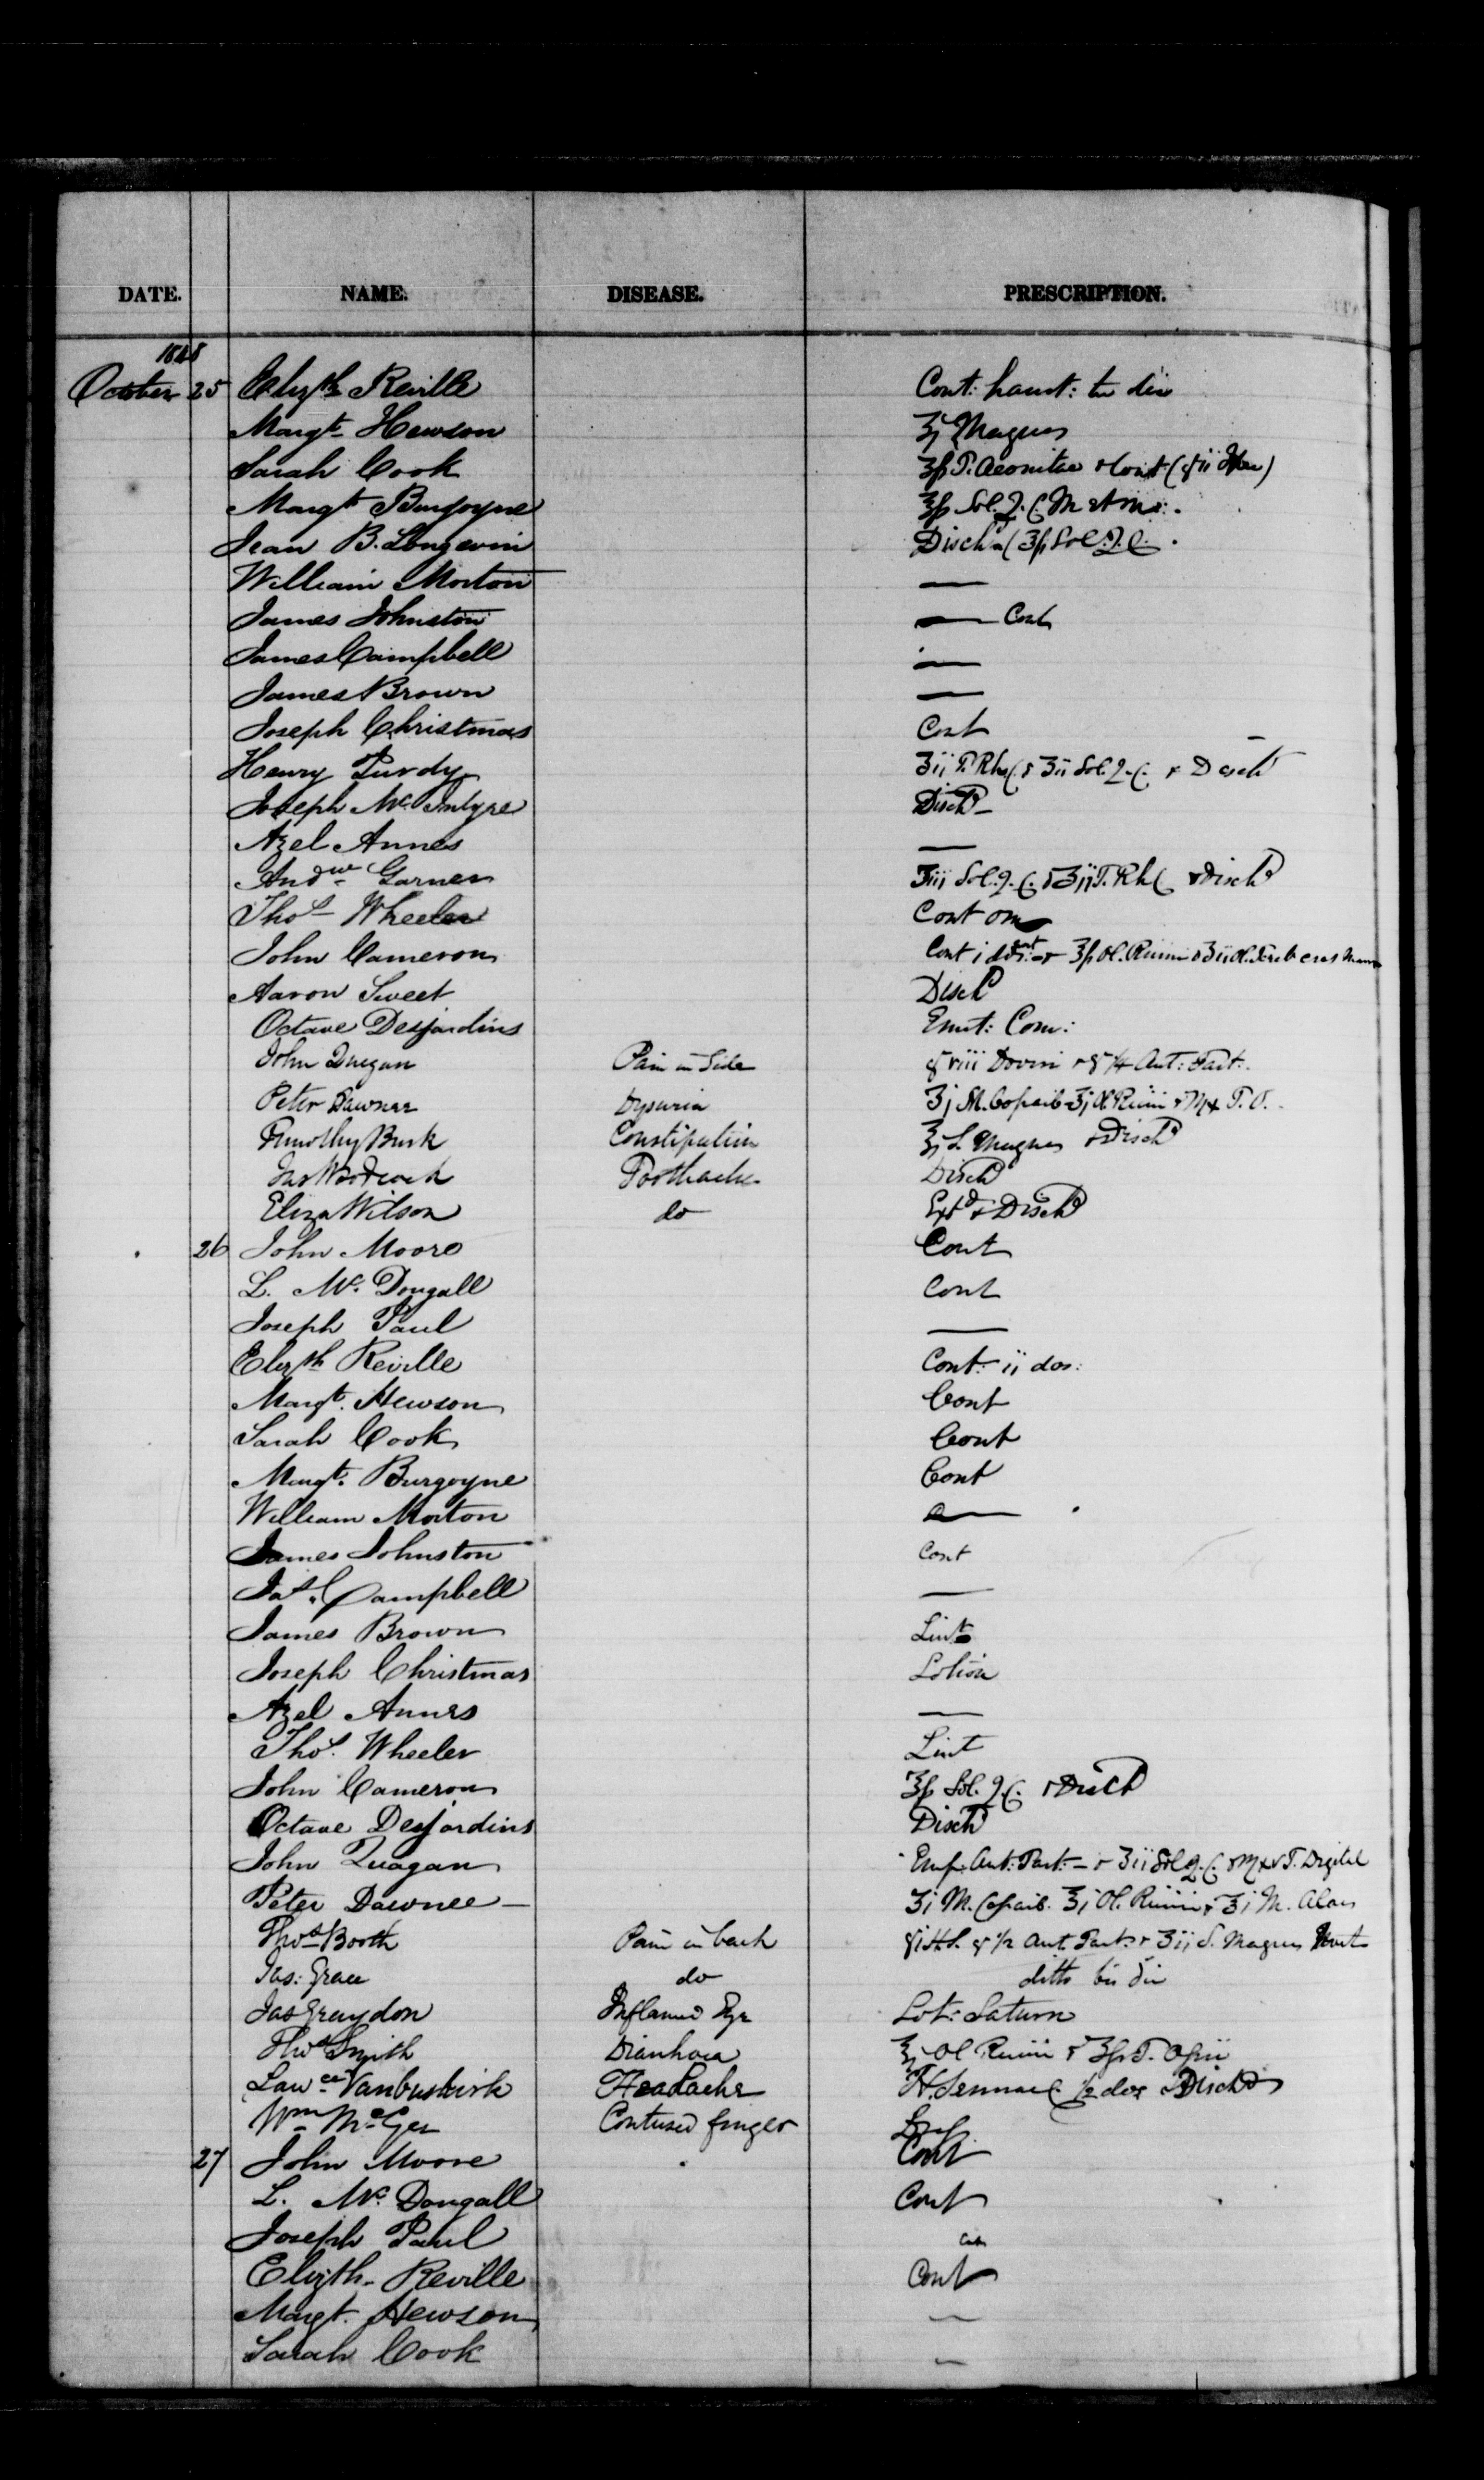 DATE. NAME. DISEASE. PRESCRIPTION.
1848
October 25 Elizth Reville Cont: haust: ter die
Margt Hewson ʒj Magnes
Sarah Cook ʒß T. Aconitae & Cont (gr ii)
Margt Burgoyne ʒß Sol. Q. C.
Jean B. Longevin Dischd (ʒß Sol. Q. C.
William Morton —
James Johnston — Cont
James Campbell —
James Brown —
Joseph Christmas Cont
Henry Purdy ʒii T. Rh C. & ʒii Sol. Q. C. & Disch
Joseph McIntyre Dischd
Azel Annes —
Andw Garner ʒiii Sol. Q. C. & ʒii T. Rh C & Dischd
Thos Wheeler Cont om
John Cameron Cont i dos: & ʒß Ol. Ricini & ʒii Ol. Tereb cras
Aaron Sweet Dischd
Octave Desjardins Emt: Com:
John Duegan Pain in Side gr viii Doveri & gr 1/4 Ant: Tart:
Peter Dawnee Dysuria ʒj Copaib ʒj Ol Ricini & Mx T. O.
Timothy Burk Constipation ʒj S. Magnes & Dischd
Jas Woodcock Toothache Dischd
Eliza Wilson do Extd & Dischd
26 John Moore Cont
L. McDougall Cont
Joseph Paul —
Elizth Reville Cont: ii dos:
Margt. Hewson Cont
Sarah Cook Cont
Margt. Burgoyne Cont
William Morton —
James Johnston Cont
Jas. Campbell —
James Brown Lint
Joseph Christmas Lotion
Azel Annes —
Thos. Wheeler Lint
John Cameron ʒß Sol. Q. C. & Dischd
Octave Desjardins Dischd
John Duagan Emp. Ant: Tart: — & ʒii Sol Q. C. & Mxv T. Digital
Peter Dawnee — ʒi M. Copaib. ʒj Ol. Ricini & ʒi M. Aloes
Thos Booth Pain in back 1/2 Ant. Tart: & ʒii S. Magnes
Jas: Grace do ditto bis die
Jas Graydon Inflamed Eye Lot: Saturn
Thos Smith Diarrhoea ʒj Ol Ricini & ʒß T. Opii
Lawce Vanbuskirk Headache H. Sennae C. 1/2 dos & Dischd
Wm McGee Contused finger
27 John Moore Cont
L. McDougall Cont
Joseph Paul Cont
Elizth. Reville Cont
Margt. Hewson —
Sarah Cook —